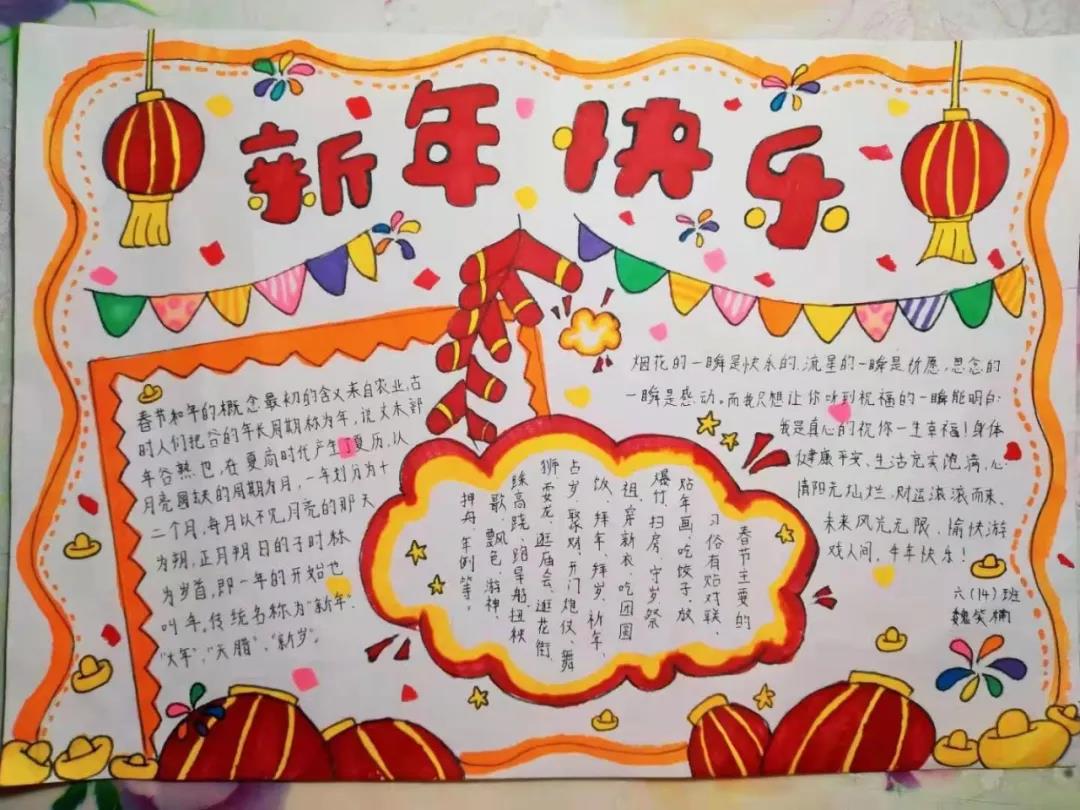 新年快乐
春节和年的概念最初的含义来自农业,古
时人们把谷的年长周期称为年,说文禾部
年谷熟也,在夏商时代产生了夏历,以
月亮圆缺的周期为月,一年划分为十
二个月,每月以不见月亮的那天
为朔,正月朔日的子时称
为岁首,即一年的开始也
叫年,传统名称为"新年"
"大年"、"天腊"、"新岁"。
春节主要的
习俗有贴对联、
贴年画、吃饺子、放
爆竹、扫房、守岁祭
祖、穿新衣、吃团圆
饭、拜年、拜岁、祈年、
占岁、聚财、开门炮仗、舞
狮耍龙、逛庙会、逛花街、
踩高跷、跑旱船、扭秧
歌、飘色、游神、
押舟、年例等。
烟花的一瞬是快乐的,流星的一瞬是祈愿,思念的
一瞬是感动。而我只想让你听到祝福的一瞬能明白:
我是真心的祝你一生幸福!身体
健康平安、生活充实饱满,心
情阳光灿烂,财运滚滚而来、
未来风光无限、愉快游
戏人间,牛年快乐!
六(14)班
魏笑楠